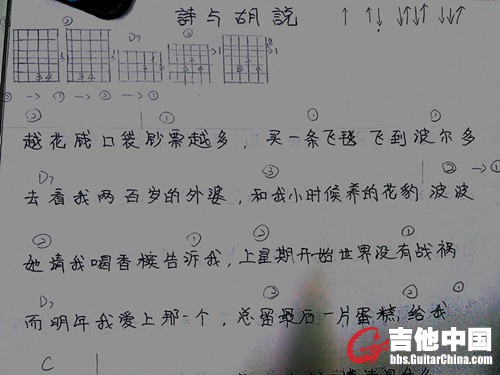 詩与胡說 ↑ ↑↓ ↓↑↓↑ ↓↓↑↑
② D7 ③
② → ① → ② → ①
② ① ① ①
越花钱口袋钞票越多，买一条飞毯飞到波尔多
D7 ③ ② → ①
去看我两百岁的外婆，和我小时候养的花豹波波
② ① ② ①
她请我喝香槟告诉我，上星期开始世界没有战祸
D7 ③ ② ①
而明年我爱上那一个，总留最后一片蛋糕给我
C
吉他中国
bbs.GuitarChina.com